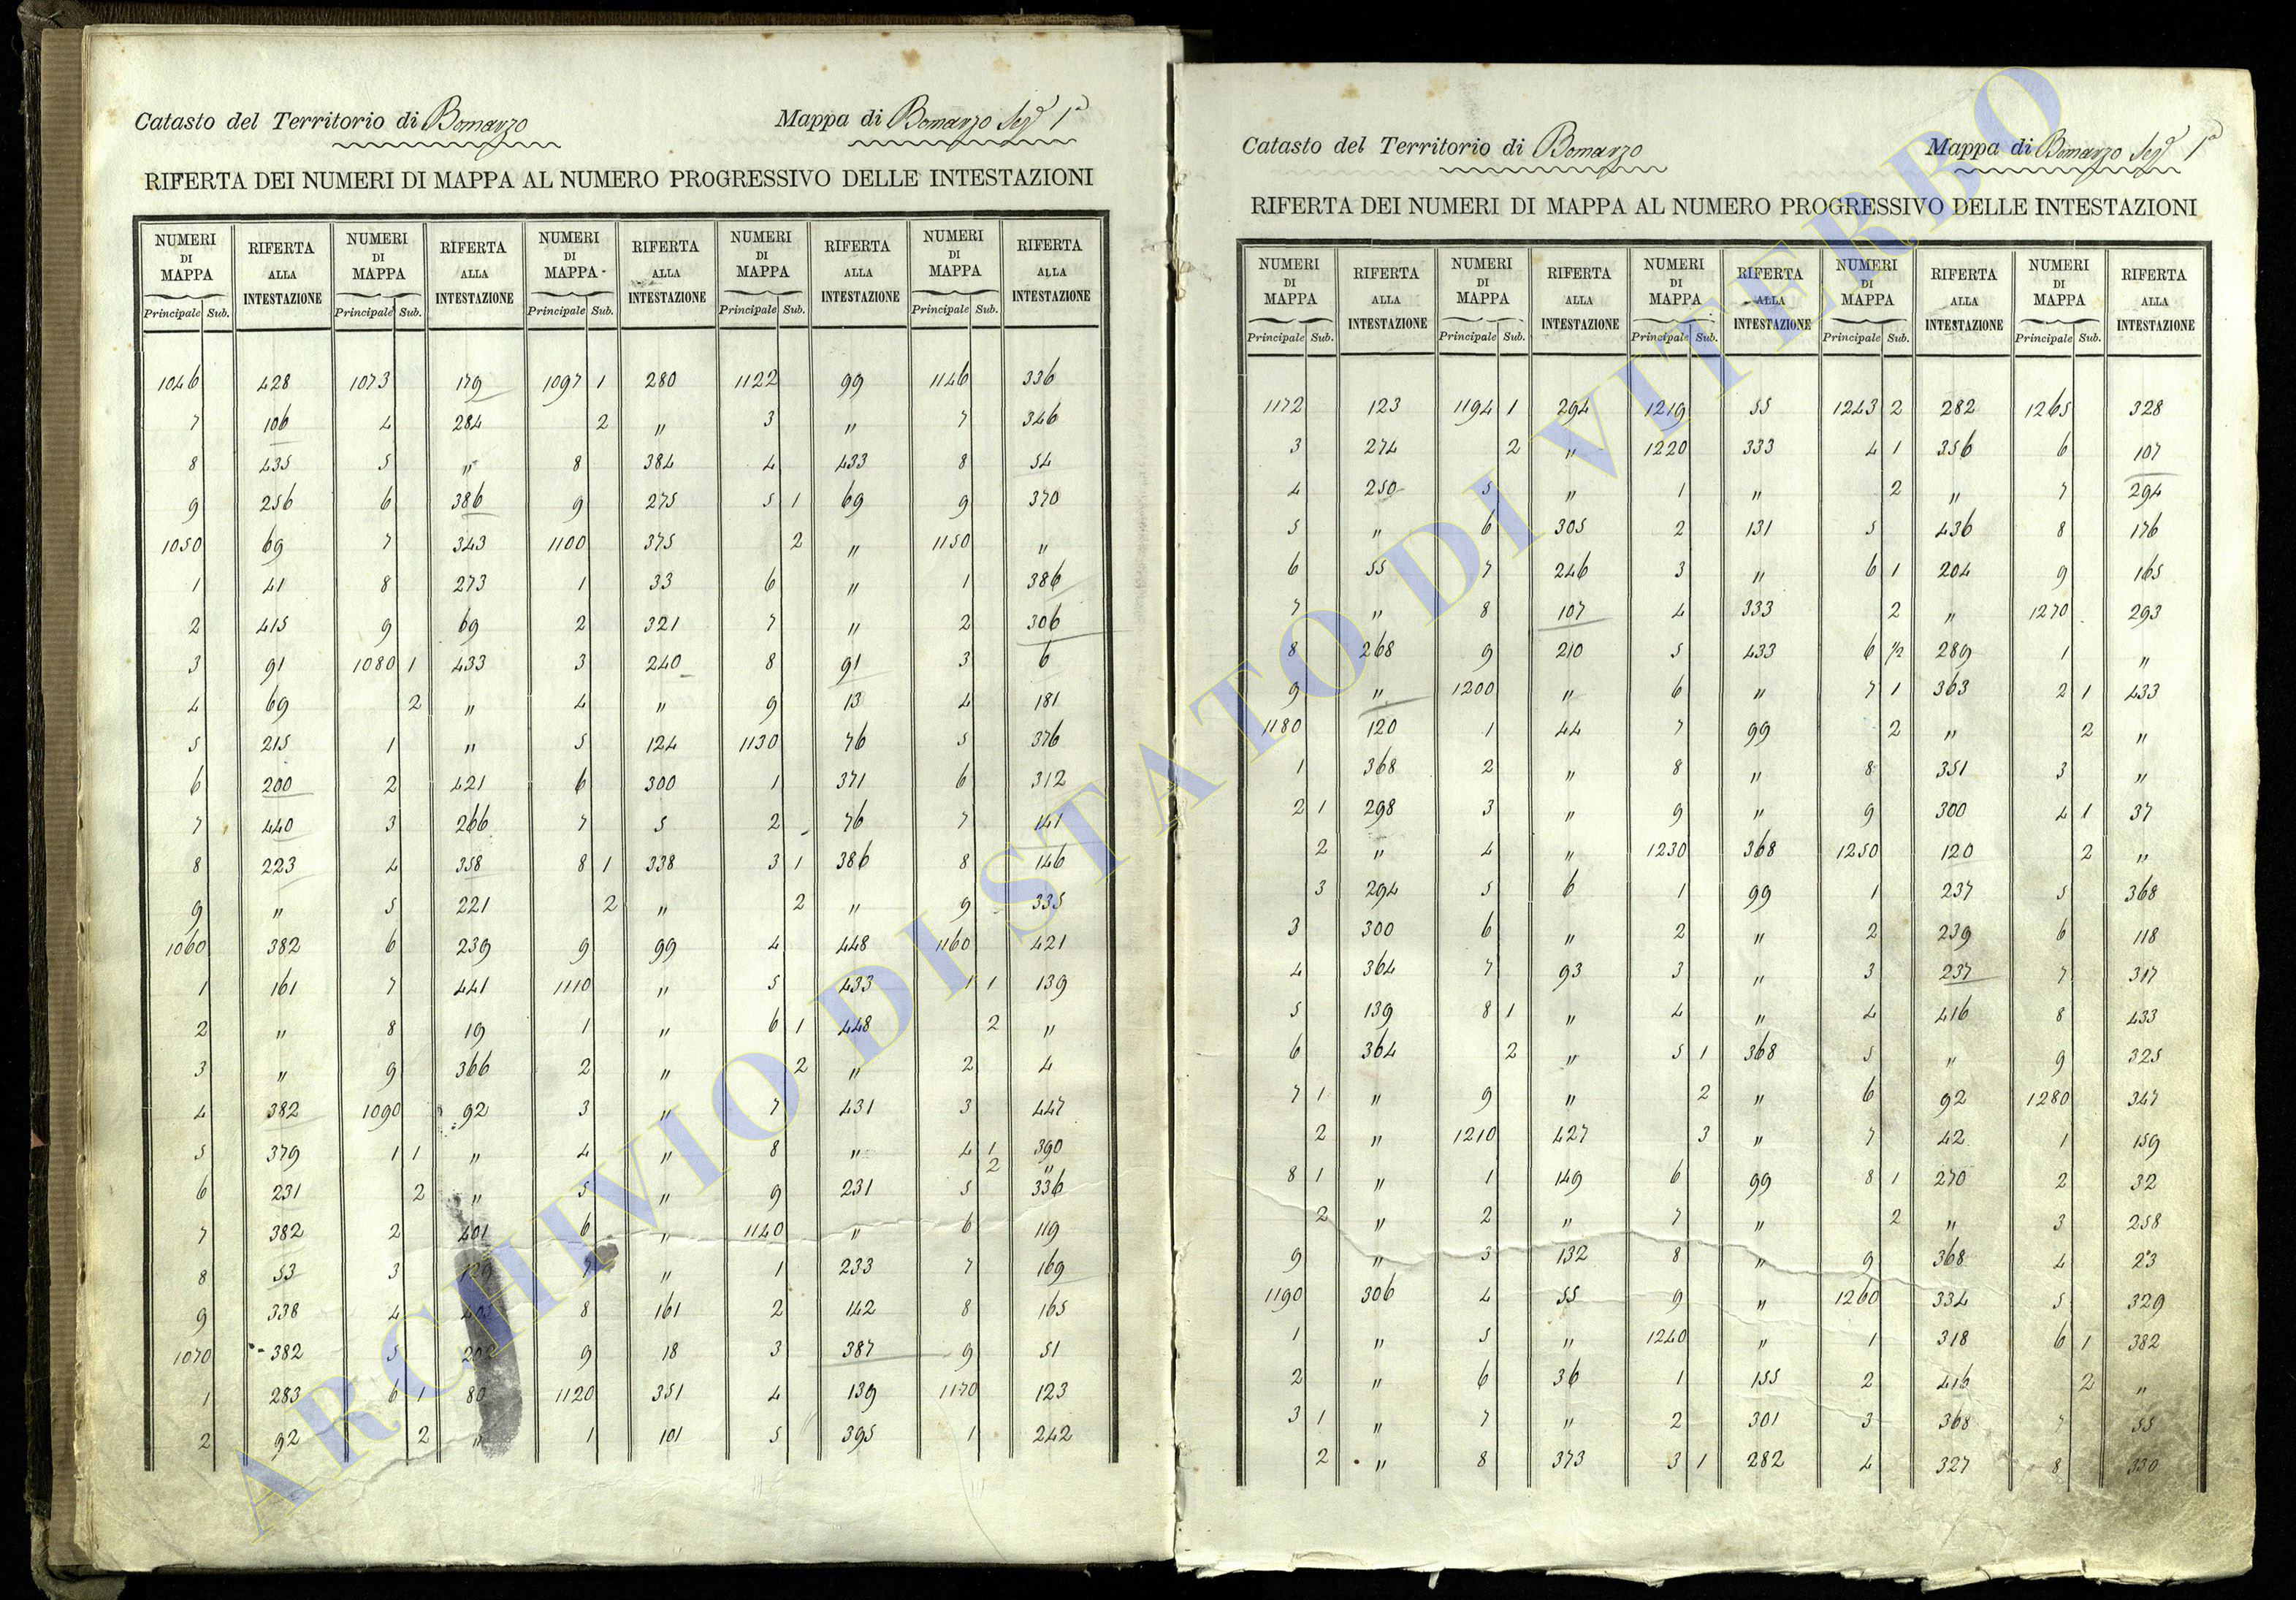 Catasto del Territorio di Bomarzo Mappa di Bomarzo Sez.e 1ª
RIFERTA DEI NUMERI DI MAPPA AL NUMERO PROGRESSIVO DELLE INTESTAZIONI
NUMERI DI MAPPA RIFERTA ALLA INTESTAZIONE NUMERI DI MAPPA RIFERTA ALLA INTESTAZIONE NUMERI DI MAPPA RIFERTA ALLA INTESTAZIONE NUMERI DI MAPPA RIFERTA ALLA INTESTAZIONE NUMERI DI MAPPA RIFERTA ALLA INTESTAZIONE
Principale Sub. Principale Sub. Principale Sub. Principale Sub. Principale Sub.
1046 428 1073 179 1097 1 280 1122 99 1146 336
7 106 4 284 2 " 3 " 7 346
8 435 5 " 8 384 4 433 8 54
9 256 6 386 9 275 5 1 69 9 370
1050 69 7 343 1100 375 2 " 1150 "
1 41 8 273 1 33 6 " 1 386
2 415 9 69 2 321 7 " 2 306
3 91 1080 1 433 3 240 8 91 3 6
4 69 2 " 4 " 9 13 4 181
5 215 1 " 5 124 1130 76 5 376
6 200 2 421 6 300 1 371 6 312
7 440 3 266 7 5 2 76 7 141
8 223 4 358 8 1 338 3 1 386 8 146
9 " 5 221 2 " 2 " 9 335
1060 382 6 239 9 99 4 448 1160 421
1 161 7 441 1110 " 5 433 1 1 139
2 " 8 19 1 " 6 1 448 2 "
3 " 9 366 2 " 2 " 2 4
4 382 1090 92 3 " 7 431 3 447
5 379 1 1 " 4 " 8 " 4 1 390
2 "
6 231 2 " 5 " 9 231 5 336
7 382 2 401 6 " 1140 " 6 119
8 53 3 7 " 1 233 7 169
9 338 4 403 8 161 2 142 8 165
1070 382 5 9 18 3 387 9 51
1 283 6 1 80 1120 351 4 139 1170 123
2 92 2 " 1 101 5 395 1 242
Catasto del Territorio di Bomarzo Mappa di Bomarzo Sez.e 1ª
RIFERTA DEI NUMERI DI MAPPA AL NUMERO PROGRESSIVO DELLE INTESTAZIONI
NUMERI DI MAPPA RIFERTA ALLA INTESTAZIONE NUMERI DI MAPPA RIFERTA ALLA INTESTAZIONE NUMERI DI MAPPA RIFERTA ALLA INTESTAZIONE NUMERI DI MAPPA RIFERTA ALLA INTESTAZIONE NUMERI DI MAPPA RIFERTA ALLA INTESTAZIONE
Principale Sub. Principale Sub. Principale Sub. Principale Sub. Principale Sub.
1172 123 1194 1 294 1219 55 1243 2 282 1265 328
3 274 2 " 1220 333 4 1 356 6 107
4 250 5 " 1 " 2 " 7 294
5 " 6 305 2 131 5 436 8 176
6 55 7 246 3 " 6 1 204 9 165
7 " 8 107 4 333 2 " 1270 293
8 268 9 210 5 433 6 1/2 289 1 "
9 " 1200 " 6 " 7 1 363 2 1 433
1180 120 1 44 7 99 2 " 2 "
1 368 2 " 8 " 8 351 3 "
2 1 298 3 " 9 " 9 300 4 1 37
2 " 4 " 1230 368 1250 120 2 "
3 294 5 6 1 99 1 237 5 368
3 300 6 " 2 " 2 239 6 118
4 364 7 93 3 " 3 237 7 317
5 139 8 1 " 4 " 4 416 8 433
6 364 2 " 5 1 368 5 " 9 325
7 1 " 9 " 2 " 6 92 1280 347
2 " 1210 427 3 " 7 42 1 159
8 1 " 1 149 6 99 8 1 270 2 32
2 " 2 " 7 " 2 " 3 258
9 " 3 132 8 " 9 368 4 23
1190 306 4 55 9 " 1260 334 5 329
1 " 5 " 1240 " 1 318 6 1 382
2 " 6 36 1 155 2 416 2 "
3 1 " 7 " 2 301 3 368 7 55
2 " 8 373 3 1 282 4 327 8 330
ARCHIVIO DI STATO DI VITERBO